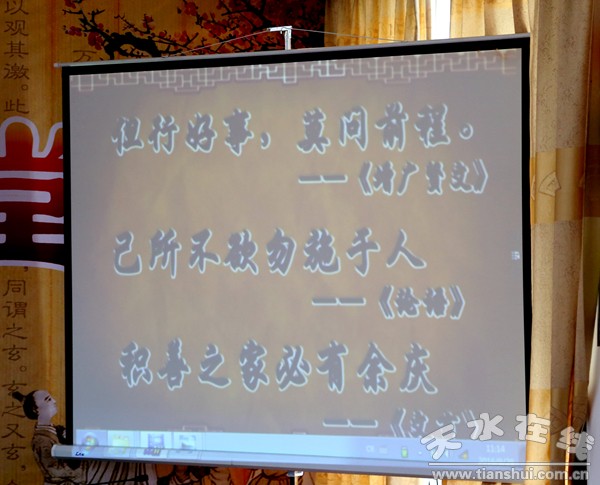 以观其徼。此
万
但行好事，莫问前程。
——《增广贤文》
己所不欲勿施于人
——《论语》
积善之家必有余庆
同谓之玄。玄之又玄，
11:14
天水在线
www.tianshui.com.cn